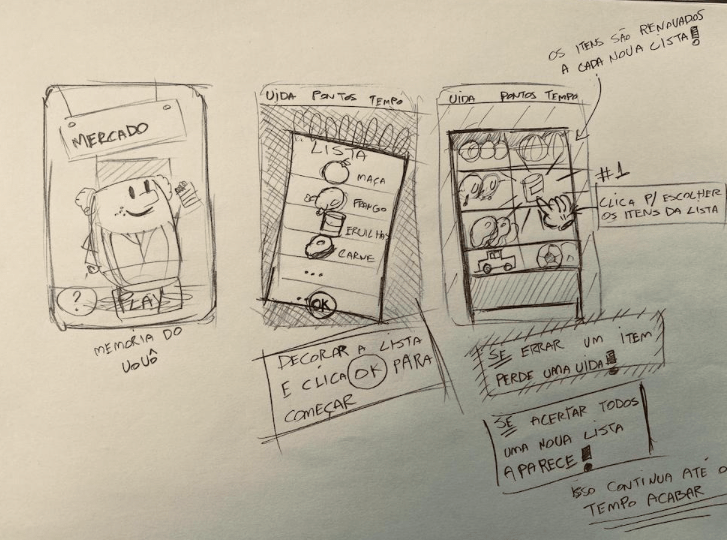 MERCADO
?
PLAY
MEMÓRIA DO
VOVÔ
VIDA PONTOS TEMPO
LISTA
MAÇA
FRANGO
ERVILHAS
CARNE
...
... OK
DECORAR A LISTA
E CLICA OK PARA
COMEÇAR
VIDA PONTOS TEMPO
OS ITENS SÃO RENOVADOS
A CADA NOVA LISTA!
#1
CLICA P/ ESCOLHER
OS ITENS DA LISTA
SE ERRAR UM ITEM
PERDE UMA VIDA!
SE ACERTAR TODOS
UMA NOVA LISTA
APARECE!
ISSO CONTINUA ATÉ O
TEMPO ACABAR